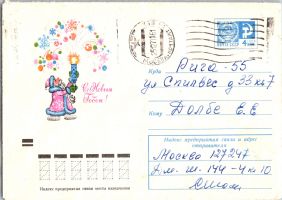 С Новым
Годом!
ПОЧТА СССР
4
Куда Рига-55
ул Спилвес д 33 кв 7
Кому Долбе Е.Е
Индекс предприятия связи и адрес
отправителя
Москва 127247
Дм. ш. 144-4 кв 10
Индекс предприятия связи места назначения